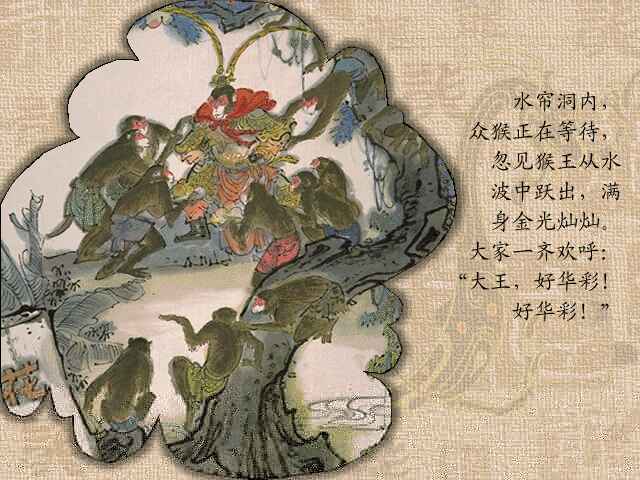 水帘洞内，
众猴正在等待，
忽见猴王从水
波中跃出，满
身金光灿灿。
大家一齐欢呼：
“大王，好华彩！
好华彩！”
花